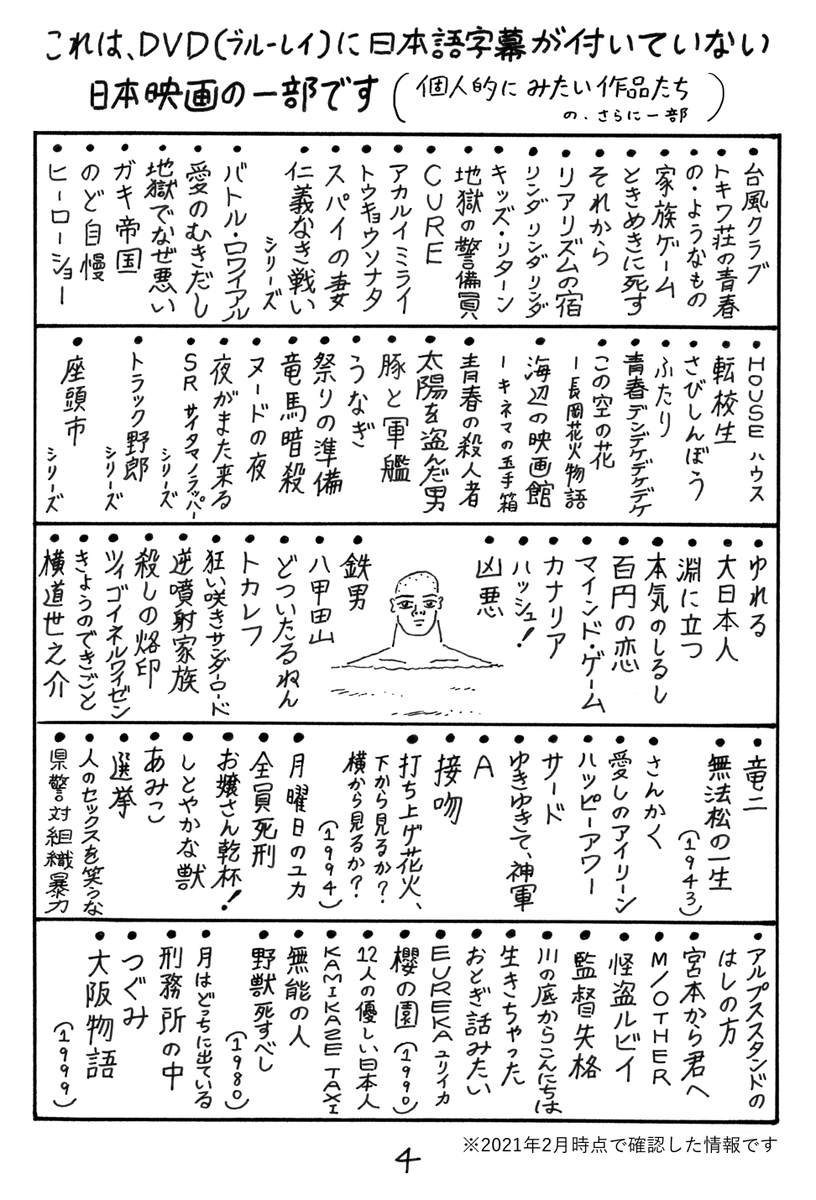 これは、DVD(ブルーレイ)に日本語字幕が付いていない
日本映画の一部です(個人的にみたい作品たち
の、さらに一部)
●台風クラブ
●トキワ荘の青春
●の・ようなもの
●家族ゲーム
●ときめきに死す
●それから
●リアリズムの宿
●リンダリンダリンダ
●キッズ・リターン
●地獄の警備員
●CURE
●アカルイミライ
●トウキョウソナタ
●スパイの妻
●仁義なき戦い
シリーズ
●バトル・ロワイアル
●愛のむきだし
●地獄でなぜ悪い
●ガキ帝国
●のど自慢
●ヒーローショー
●HOUSE ハウス
●転校生
●さびしんぼう
●ふたり
●青春デンデケデケデケ
●この空の花
ー長岡花火物語
●海辺の映画館
ーキネマの玉手箱
●青春の殺人者
●太陽を盗んだ男
●豚と軍艦
●うなぎ
●祭りの準備
●竜馬暗殺
●ヌードの夜
●夜がまた来る
●SR サイタマノラッパー
シリーズ
●トラック野郎
シリーズ
●座頭市
シリーズ
●ゆれる
●大日本人
●淵に立つ
●本気のしるし
●百円の恋
●マインド・ゲーム
●カナリア
●ハッシュ!
●凶悪
●鉄男
●八甲田山
●どついたるねん
●トカレフ
●狂い咲きサンダーロード
●逆噴射家族
●殺しの烙印
●ツィゴイネルワイゼン
●きょうのできごと
●横道世之介
●竜二
●無法松の一生
(1943)
●さんかく
●愛しのアイリーン
●ハッピーアワー
●サード
●ゆきゆきて、神軍
●A
●接吻
●打ち上げ花火、
下から見るか?
横から見るか?
(1994)
●月曜日のユカ
●全員死刑
●お嬢さん乾杯!
●しとやかな獣
●あみこ
●選挙
●人のセックスを笑うな
●県警対組織暴力
●アルプススタンドの
はしの方
●宮本から君へ
●M/OTHER
●怪盗ルビイ
●監督失格
●川の底からこんにちは
●生きちゃった
●おとぎ話みたい
●EUREKA ユリイカ
●櫻の園(1990)
●12人の優しい日本人
●KAMIKAZE TAXI
●無能の人
●野獣死すべし
(1980)
●月はどっちに出ている
●刑務所の中
●つぐみ
●大阪物語
(1999)
※2021年2月時点で確認した情報です
4